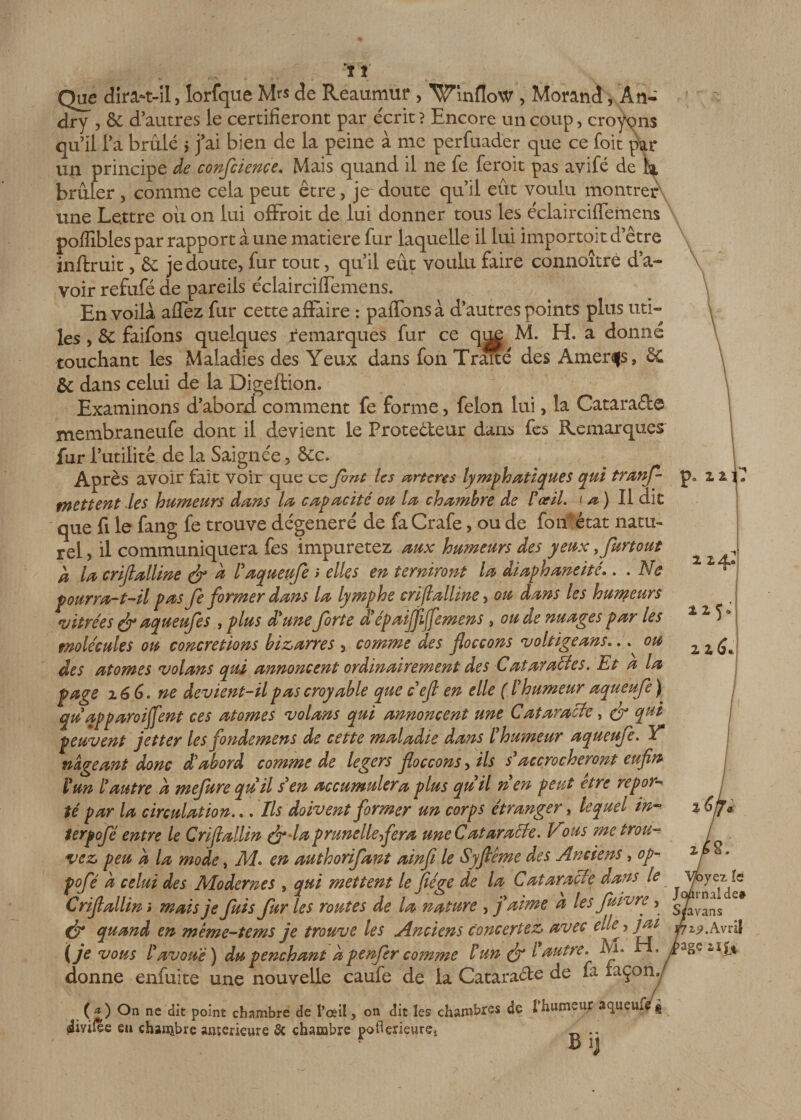 11
Que dira-t-il, lorſque Mrs de Reaumur, Winſlow, Morand, An-
dry, & d'autres le certifieront par écrit? Encore un coup, croyons
qu'il l'a brûlé; j'ai bien de la peine à me perſuader que ce ſoit par
un principe de conſcience. Mais quand il ne ſe ſeroit pas aviſé de la
brûler, comme cela peut être, je doute qu'il eût voulu montrer
une Lettre où on lui offroit de lui donner tous les éclairciſſemens
poſſibles par rapport à une matiere ſur laquelle il lui importoit d'être
inſtruit, & je doute, ſur tout, qu'il eût voulu faire connoître d'a-
voir refuſé de pareils éclairciſſemens.
En voilà aſſez ſur cette affaire: paſſons à d'autres points plus uti-
les, & faiſons quelques remarques ſur ce que M. H. a donné
touchant les Maladies des Yeux dans ſon Traité des Amers, &
& dans celui de la Digeſtion.
Examinons d'abord comment ſe forme, ſelon lui, la Cataracte
membraneuſe dont il devient le Protecteur dans ſes Remarques
ſur l'utilité de la Saignée, &c.
Après avoir fait voir que ce ſont les arteres lymphatiques qui tranſ- p. 221.
mettent les humeurs dans la capacité ou la chambre de l'œil. (a) Il dit
que ſi le ſang ſe trouve dégeneré de ſa Craſe, ou de ſon état natu-
rel, il communiquera ſes impuretez aux humeurs des yeux, ſurtout
à la criſtalline & à l'aqueuſe; elles en terniront la diaphaneité... Ne 224.
pourra-t-il pas ſe former dans la lymphe criſtalline, ou dans les humeurs
vitrées & aqueuſes, plus d'une ſorte d'épaiſſiſſemens, ou de nuages par les 225.
molécules ou concretions bizarres, comme des floccons voltigeans... ou 226.
des atomes volans qui annoncent ordinairement des Cataractes. Et à la
page 266. ne devient-il pas croyable que c'eſt en elle (l'humeur aqueuſe)
qu'apparoiſſent ces atomes volans qui annoncent une Cataracte, & qui
peuvent jetter les fondemens de cette maladie dans l'humeur aqueuſe. Y
nâgeant donc d'abord comme de legers floccons, ils s'accrocheront enfin
l'un l'autre à meſure qu'il s'en accumulera plus qu'il n'en peut être repor-
té par la circulation... Ils doivent former un corps étranger, lequel in- 267.
terpoſé entre le Criſtallin & la prunelle, ſera une Cataracte. Vous me trou-
vez peu à la mode, M. en authoriſant ainſi le Syſtême des Anciens, op- 268.
poſé à celui des Modernes, qui mettent le ſiége de la Cataracte dans le Voyez le
Criſtallin; mais je ſuis ſur les routes de la nature, j'aime à les ſuivre, Journal des Sçavans
& quand en même-tems je trouve les Anciens concertez avec elle, j'ai 1729. Avril
(je vous l'avouë) du penchant à penſer comme l'un & l'autre. M. H. page 215.
donne enſuite une nouvelle cauſe de la Cataracte de ſa façon.
(a) On ne dit point chambre de l'œil, on dit les chambres de l'humeur aqueuſe,
diviſée en chambre anterieure & chambre poſterieure.
B ij